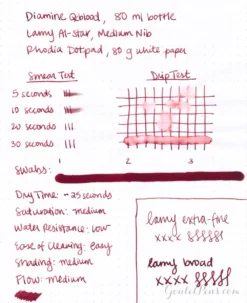 Diamine Oxblood, 80 ml bottle
Lamy Al-Star, Medium Nib
Rhodia Dotpad, 80 g white paper
Smear Test
Drip Test
5 seconds
10 seconds
20 seconds
30 seconds
1 2 3
Swabs:
Dry Time: ~25 seconds
Saturation: medium
Water Resistance: low
Ease of Cleaning: easy
Shading: medium
Flow: medium
lamy extra-fine
xxxx
lamy broad
xxxx
GouletPens.com